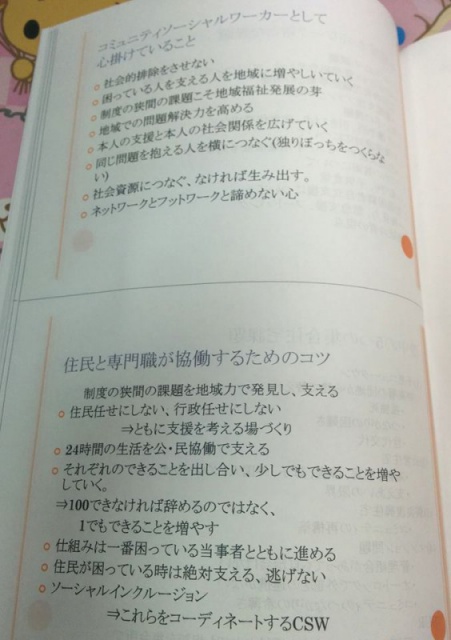 コミュニティソーシャルワーカーとして
心掛けていること
社会的排除をさせない
困っている人を支える人を地域に増やしいていく
制度の狭間の課題こそ地域福祉発展の芽
地域での問題解決力を高める
本人の支援と本人の社会関係を広げていく
同じ問題を抱える人を横につなぐ(独りぼっちをつくらな
い)
社会資源につなぐ、なければ生み出す。
ネットワークとフットワークと諦めない心
住民と専門職が協働するためのコツ
制度の狭間の課題を地域力で発見し、支える
住民任せにしない、行政任せにしない
⇒ともに支援を考える場づくり
24時間の生活を公・民協働で支える
それぞれのできることを出し合い、少しでもできることを増や
していく。
⇒100できなければ辞めるのではなく、
1でもできることを増やす
仕組みは一番困っている当事者とともに進める
住民が困っている時は絶対支える、逃げない
ソーシャルインクルージョン
⇒これらをコーディネートするCSW